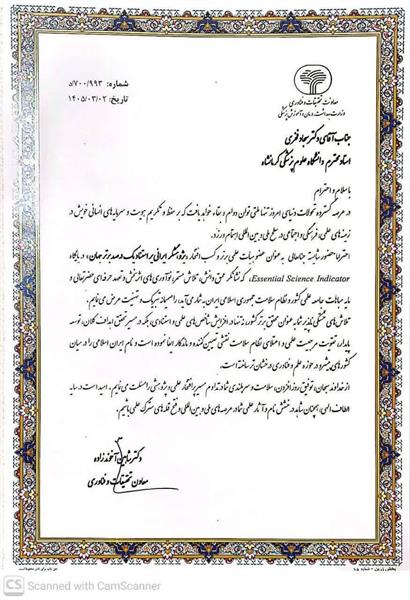 شماره: ۷۰۰/۹۹۳/د
تاریخ: ۱۴۰۵/۰۳/۰۲
معاونت تحقیقات و فناوری
وزارت بهداشت، درمان و آموزش پزشکی
جناب آقای دکتر سجاد فخری
استاد محترم دانشگاه علوم پزشکی کرمانشاه
با سلام و احترام
در عرصه گسترده تحولات دنیای امروز تنها ملتی توان دوام و بقاء خواهد یافت که بر حفظ و تکریم هویت و سرمایه‌های انسانی خویش در
زمینه‌های علمی، فرهنگی و اجتماعی در سطح ملی و بین المللی اهتمام ورزد.
افتخار حضور شایسته جنابعالی به عنوان عضو هیات علمی برتر و کسب افتخار "پژوهشگر ایرانی پر استناد یک درصد برتر جهان" در پایگاه
Essential Science Indicator، که نشانگر عمق دانش، تلاش مستمر، نوآوری‌های اثربخش و تعهد حرفه‌ای حضرتعالی و
مایه مباهات جامعه علمی کشور و نظام سلامت جمهوری اسلامی ایران به شمار می‌آید، را صمیمانه تبریک و تهنیت عرض می‌نمایم.
تلاش‌های خستگی ناپذیر شما به عنوان محقق برتر کشور، نه تنها در افزایش شاخص‌های علمی و استنادی، بلکه در مسیر تحقق اهداف کلان، توسعه
پایدار، تقویت مرجعیت علمی و اعتلای نظام سلامت نقشی تعیین کننده و ماندگار ایفا نموده است و نام ایران اسلامی را در میان
کشورهای پیشرو در حوزه علم و فناوری درخشان‌تر ساخته است.
از خداوند سبحان، توفیق روز افزون، سلامت و سربلندی شما در تداوم مسیر پرافتخار علمی و پژوهشی را مسئلت می‌نمایم. امید است در سایه
الطاف الهی، همچنان شاهد درخشش نام و آثار علمی شما در عرصه‌های ملی و بین المللی و فتح قله‌های سترگ علمی باشیم.
دکتر شاهین آخوندزاده
معاون تحقیقات و فناوری
CS Scanned with CamScanner